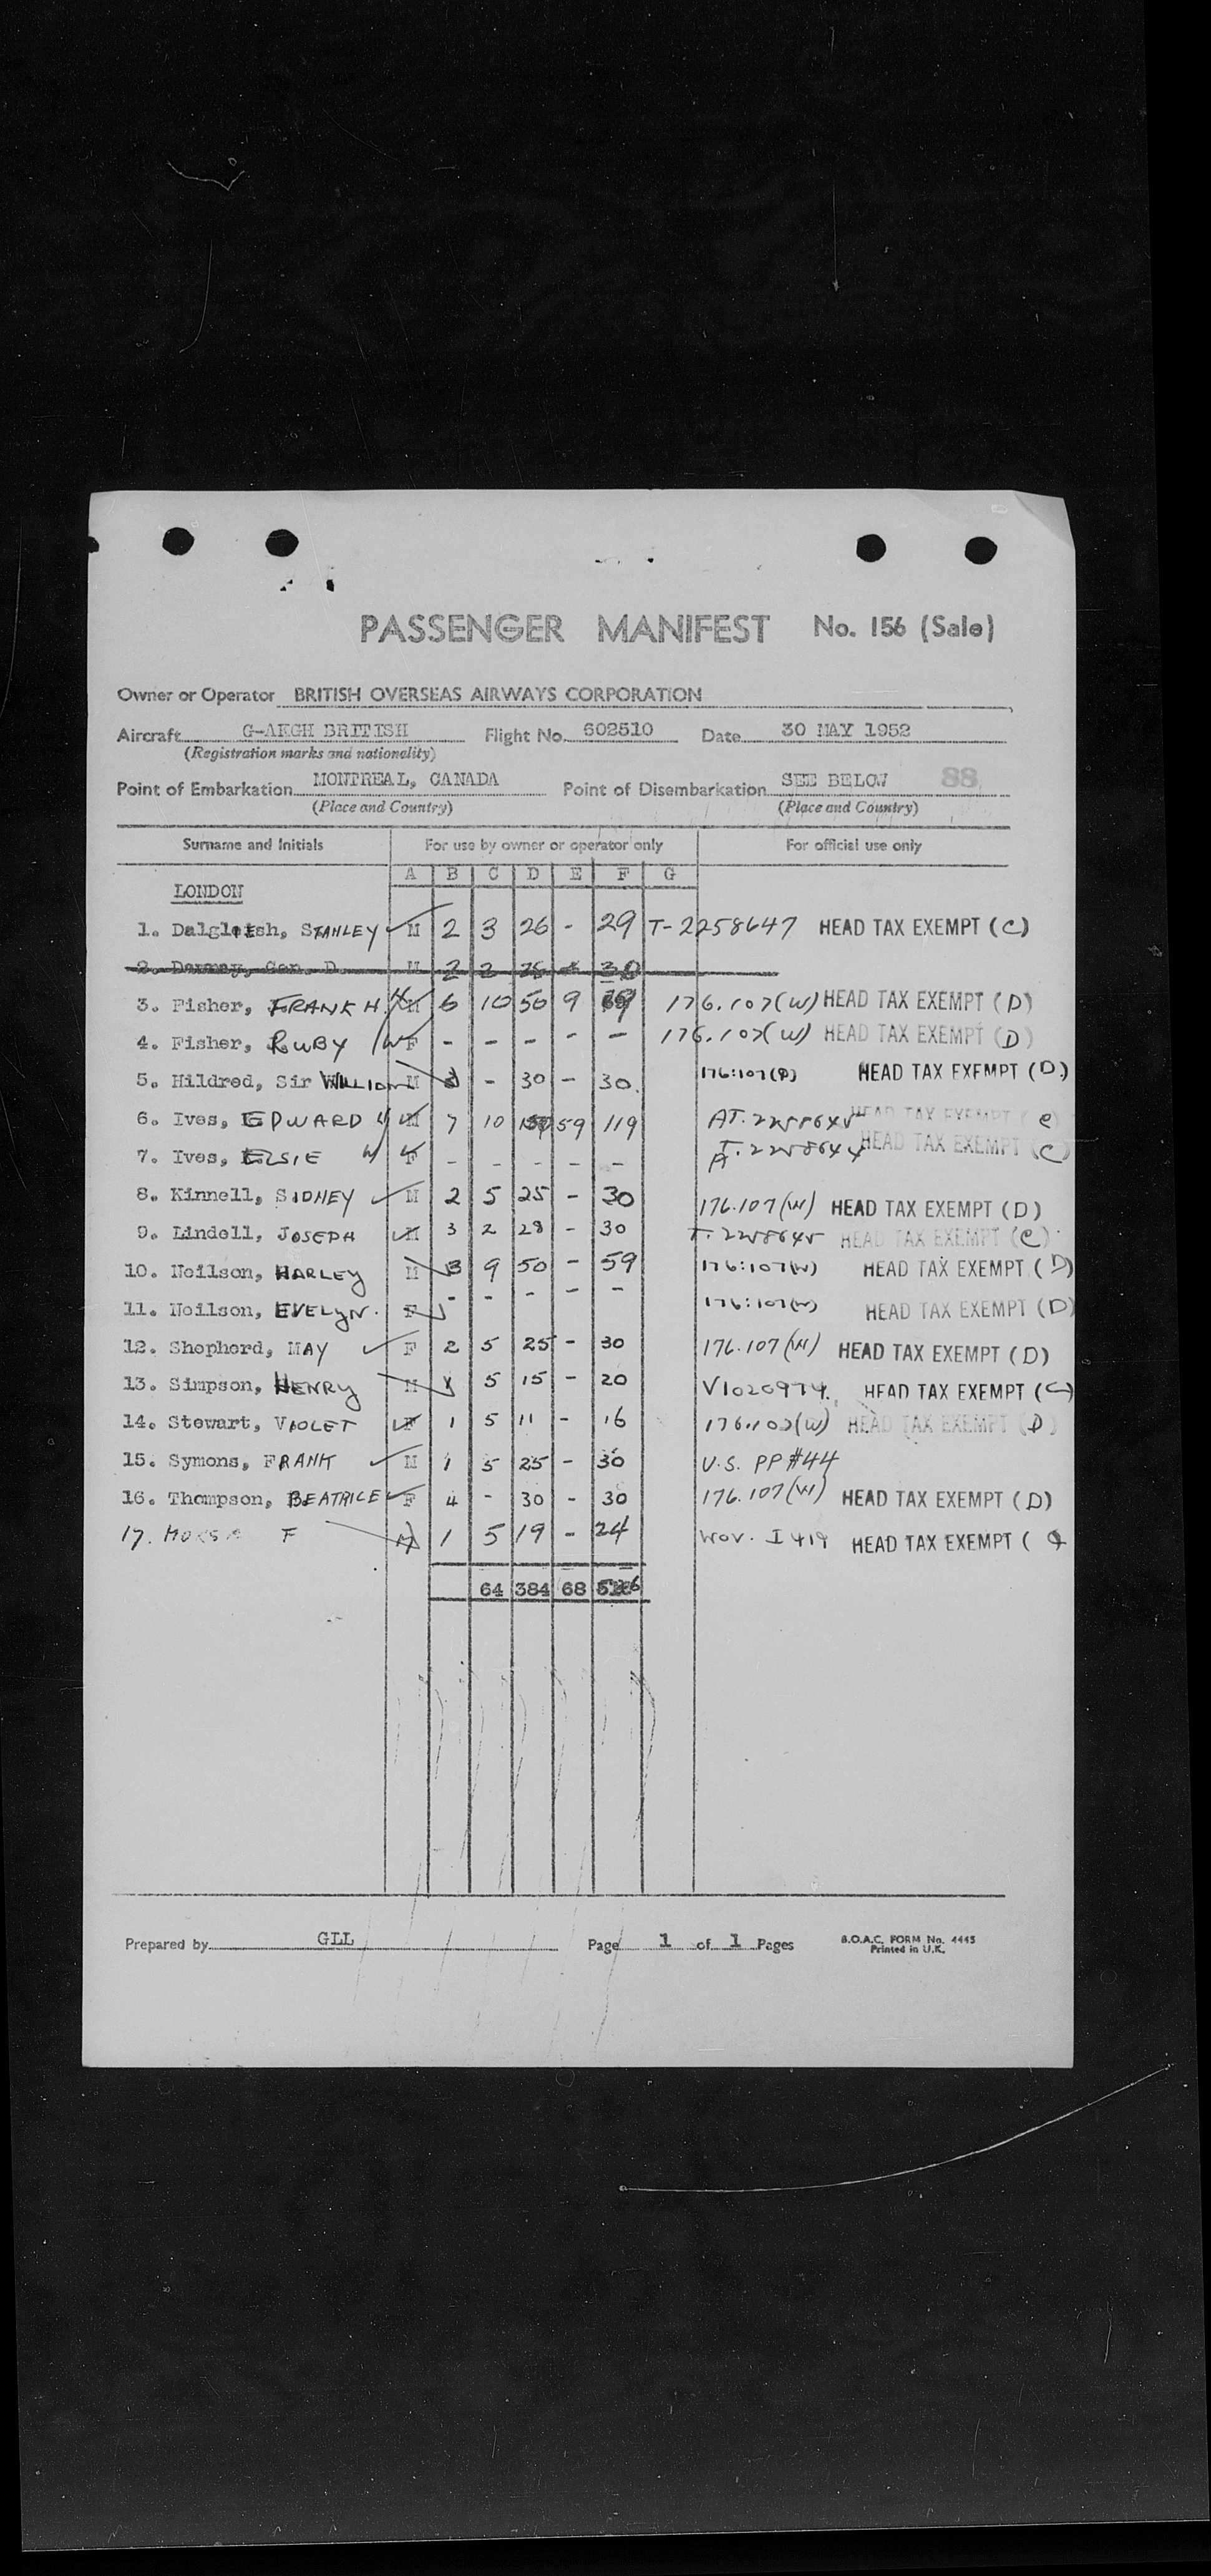 PASSENGER MANIFEST No. 156 (Sale)
Owner or Operator BRITISH OVERSEAS AIRWAYS CORPORATION
Aircraft G-AKGH BRITISH Flight No. 602510 Date 30 MAY 1952
(Registration marks and nationality)
Point of Embarkation MONTREAL, CANADA Point of Disembarkation SEE BELOW 88
(Place and Country) (Place and Country)
Surname and Initials For use by owner or operator only For official use only
A B C D E F G
LONDON
1. Dalgleish, STANLEY M 2 3 26 - 29 T-2258647 HEAD TAX EXEMPT (C)
2. Gen. D. M 2 2
3. Fisher, FRANK H. M 6 10 50 9 69 176.107(W) HEAD TAX EXEMPT (D)
4. Fisher, RUBY W F - - - - - 176.107(W) HEAD TAX EXEMPT (D)
5. Hildred, Sir WILLIAM M - 30 - 30. 176:107(P) HEAD TAX EXEMPT (D.)
6. Ives, EDWARD H M 7 10 59 119 HEAD TAX EXEMPT (C)
7. Ives, ELSIE W F - - - - - HEAD TAX EXEMPT (C)
8. Kinnell, SIDNEY M 2 5 25 - 30 176.107(W) HEAD TAX EXEMPT (D)
9. Lindell, JOSEPH M 3 2 28 - 30 T.2258645 HEAD TAX EXEMPT (C)
10. Neilson, HARLEY M 3 9 50 - 59 176:107(W) HEAD TAX EXEMPT (D)
11. Neilson, EVELYN. F - - - - - 176:107(W) HEAD TAX EXEMPT (D)
12. Shepherd, MAY F 2 5 25 - 30 176.107(W) HEAD TAX EXEMPT (D)
13. Simpson, HENRY M 1 5 15 - 20 V1020974. HEAD TAX EXEMPT (C)
14. Stewart, VIOLET F 1 5 11 - 16 176.107(W) HEAD TAX EXEMPT (D)
15. Symons, FRANK M 1 5 25 - 30 U.S. PP #44
16. Thompson, BEATRICE F 4 - 30 - 30 176.107(W) HEAD TAX EXEMPT (D)
17. F M 1 5 19 - 24 I 419 HEAD TAX EXEMPT (
64 384 68
Prepared by GLL Page 1 of 1 Pages B.O.A.C. FORM No. 4445
Printed in U.K.